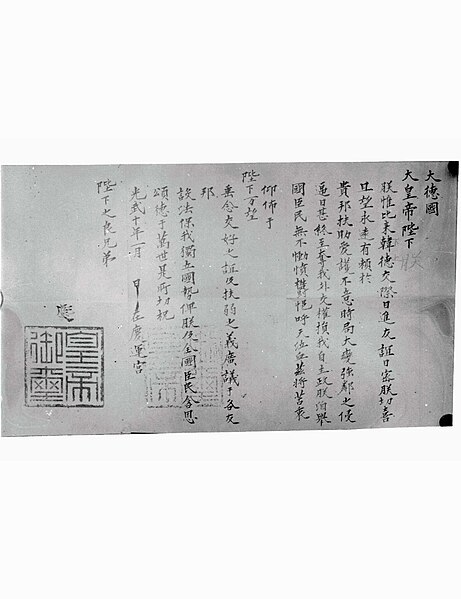 大德國
大皇帝陛下
朕惟比來韓德交際日進友誼日密朕切喜
且望永遠有賴於
貴邦扶助愛護不意時局大變強鄰之侵
逼日甚終至奪我外交權損我自主政朕洎舉
國臣民無不慟憤鬱悒呼天茲將苦衷
仰佈于
陛下万望
垂念交好之誼及扶弱之義廣議于各友
邦
設法保我獨立國勢俾朕及全國臣民含恩
頌德于萬世是所切祝
光武十年一月 在慶運宮
陛下之良兄弟
皇帝
御璽